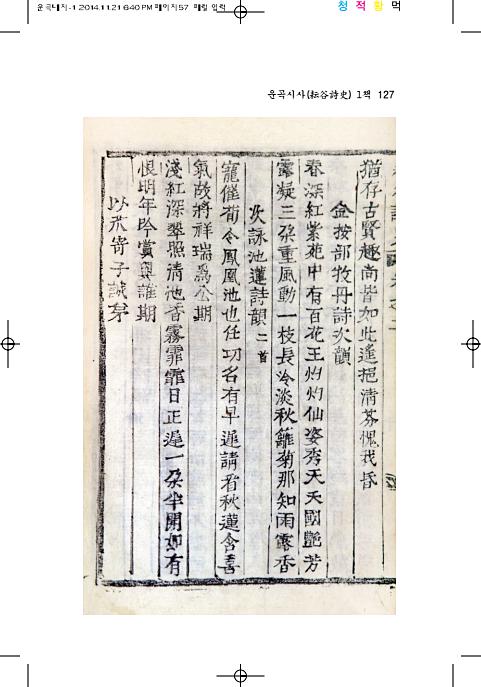 운곡내지-1 2014.11.21 6:40 PM 페이지57 매킬 입력
청 적 황 먹
운곡시사(耘谷詩史) 1책 127
猶存古賢趣尚皆如此遙挹清芬愧我昏
金按部牧丹詩次韻
春深紅紫苑中有百花王灼灼仙姿秀夭夭國艶芳
露凝三朶重風動一枝長冷淡秋籬菊那知雨露香
次詠池蓮詩韻二首
寵催荀令鳳凰池也任功名有早遲請看秋蓮含喜
氣故將祥瑞爲公期
淺紅深翠照清池香霧霏霏日正遲一朶半開如有
恨明年吟賞與誰期
以茶寄子誠弟